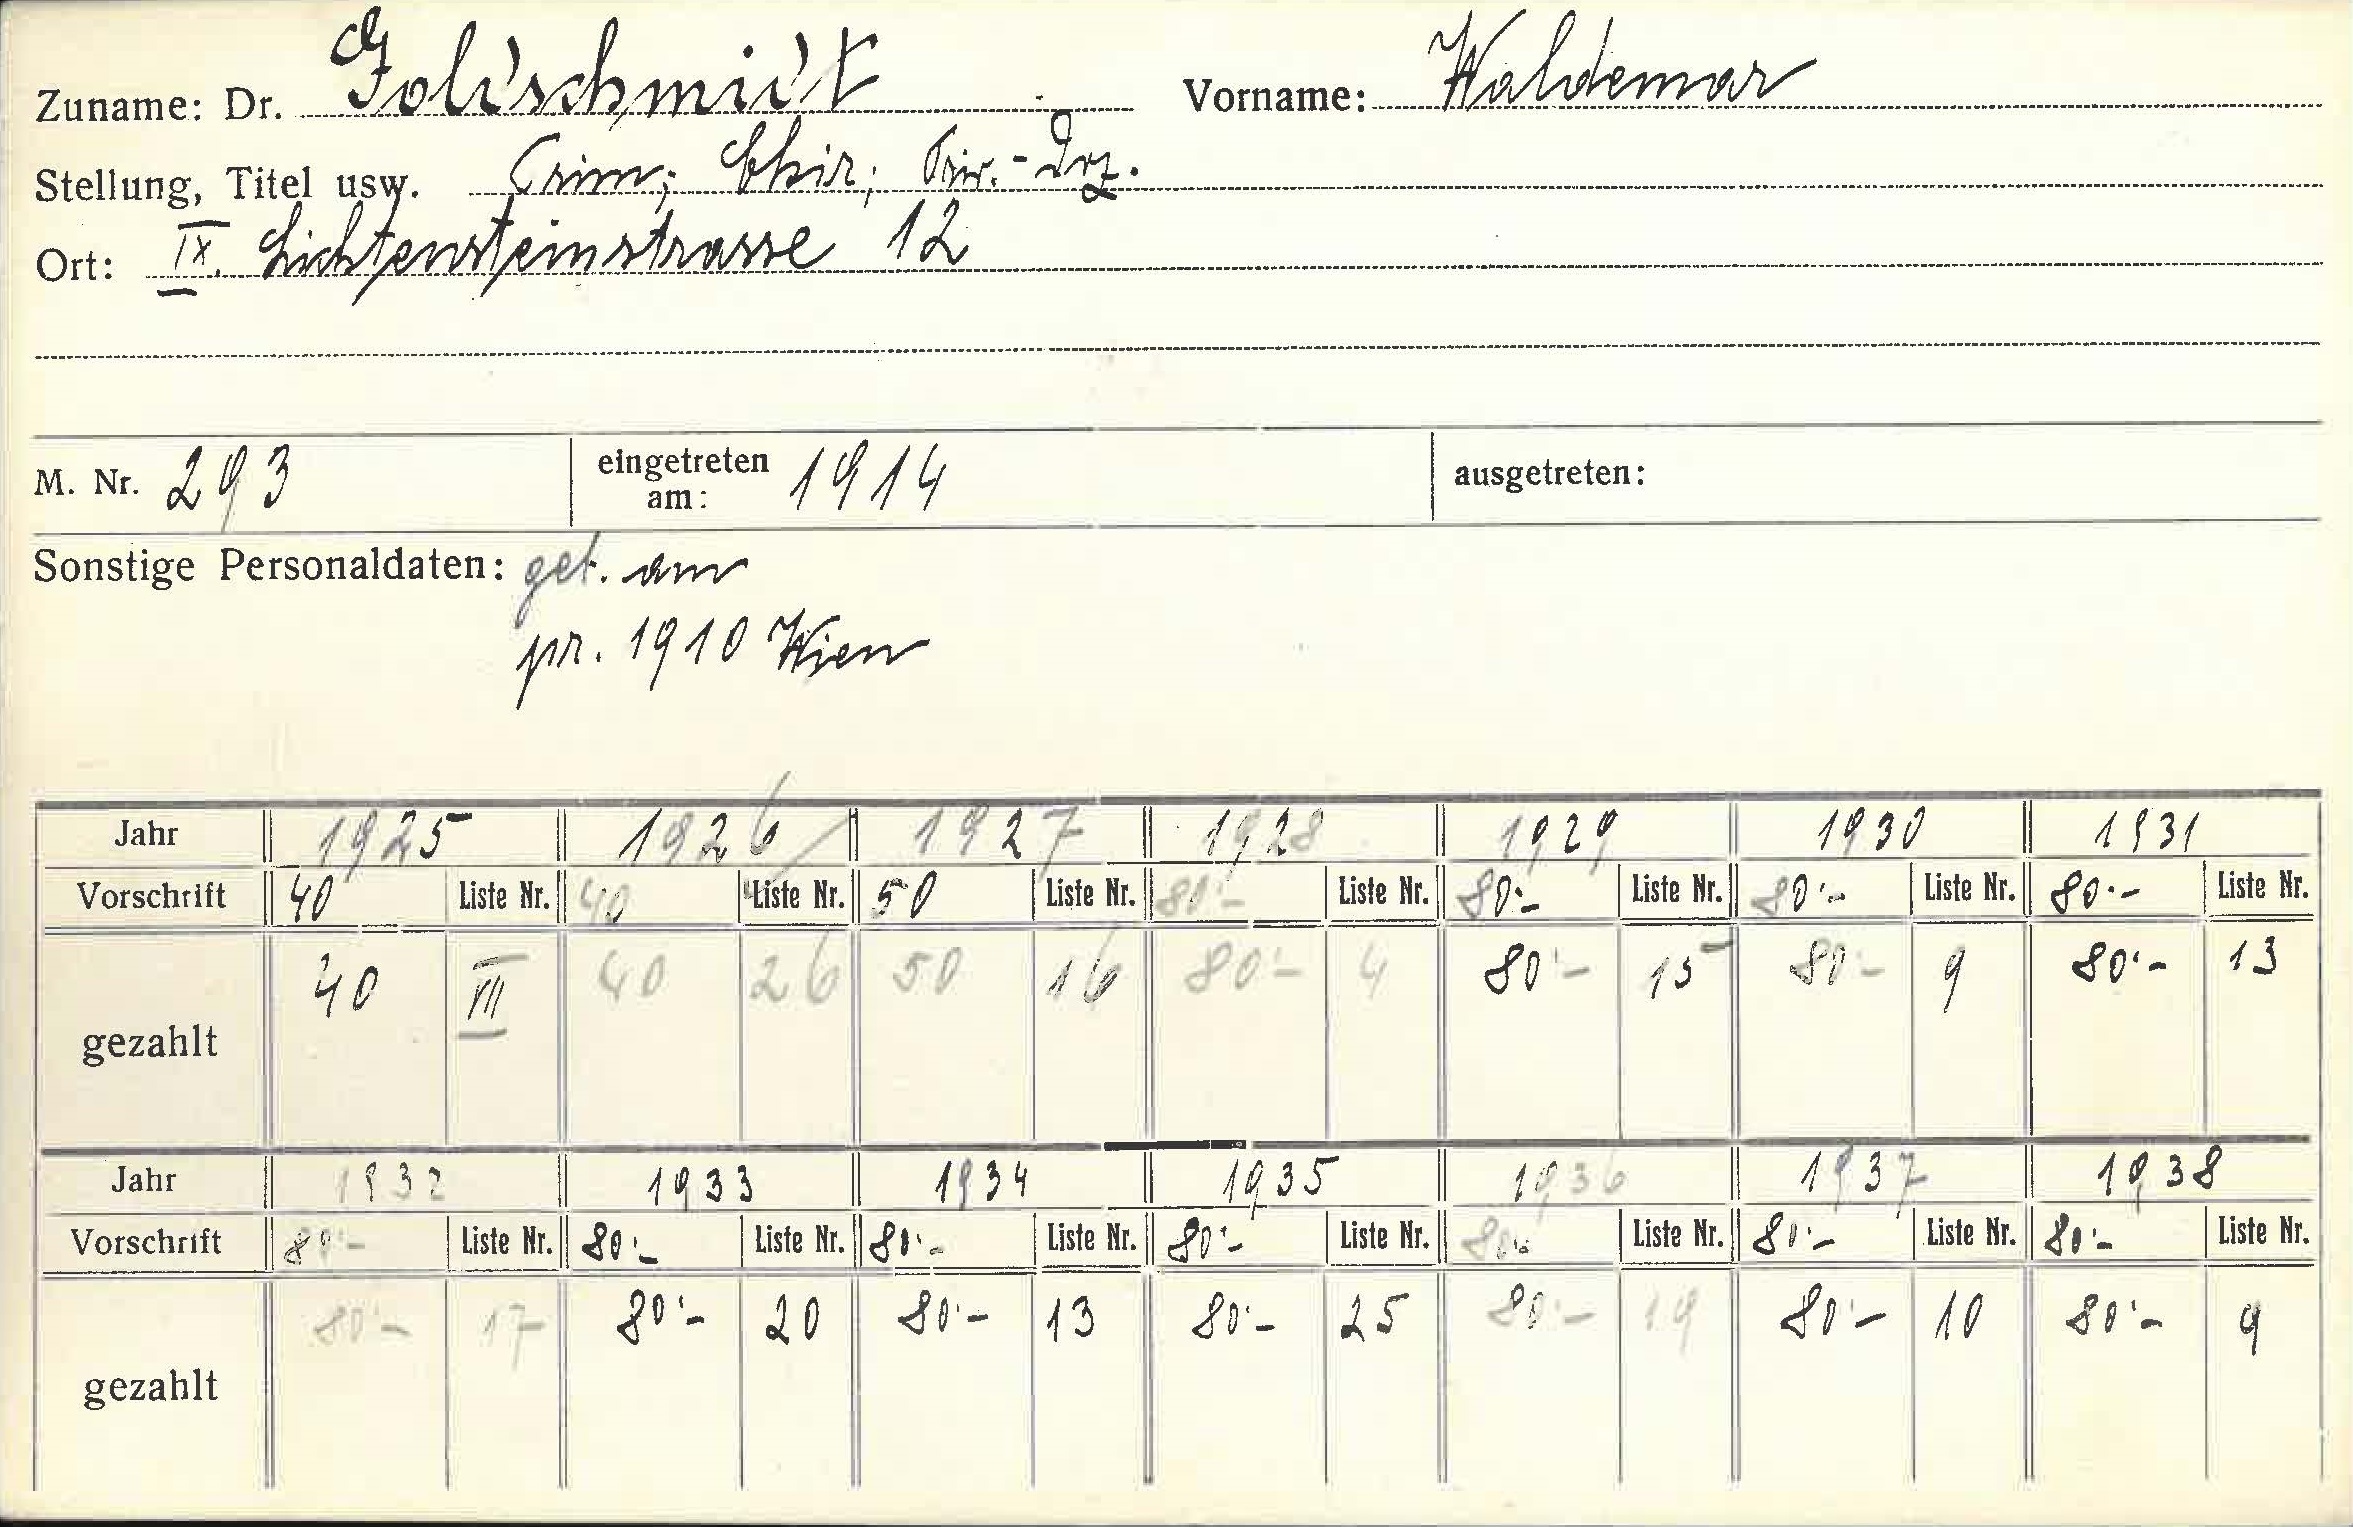 Zuname: Dr. Goldschmidt Vorname: Waldemar
Stellung, Titel usw. Prim; Chir; Priv.-Doz.
Ort: IX. Lichtensteinstrasse 12
M. Nr. 293 eingetreten am: 1914 ausgetreten:
Sonstige Personaldaten: geb. am
pr. 1910 Wien
Jahr 1925 1926 1927 1928 1929 1930 1931
Vorschrift 40 Liste Nr. 40 Liste Nr. 50 Liste Nr. 80.- Liste Nr. 80.- Liste Nr. 80.- Liste Nr. 80.- Liste Nr.
gezahlt 40 VII 40 26 50 16 80.- 4 80.- 15 80.- 9 80.- 13
Jahr 1932 1933 1934 1935 1936 1937 1938
Vorschrift 80.- Liste Nr. 80.- Liste Nr. 80.- Liste Nr. 80.- Liste Nr. 80.- Liste Nr. 80.- Liste Nr. 80.- Liste Nr.
gezahlt 80.- 17 80.- 20 80.- 13 80.- 25 80.- 19 80.- 10 80.- 9